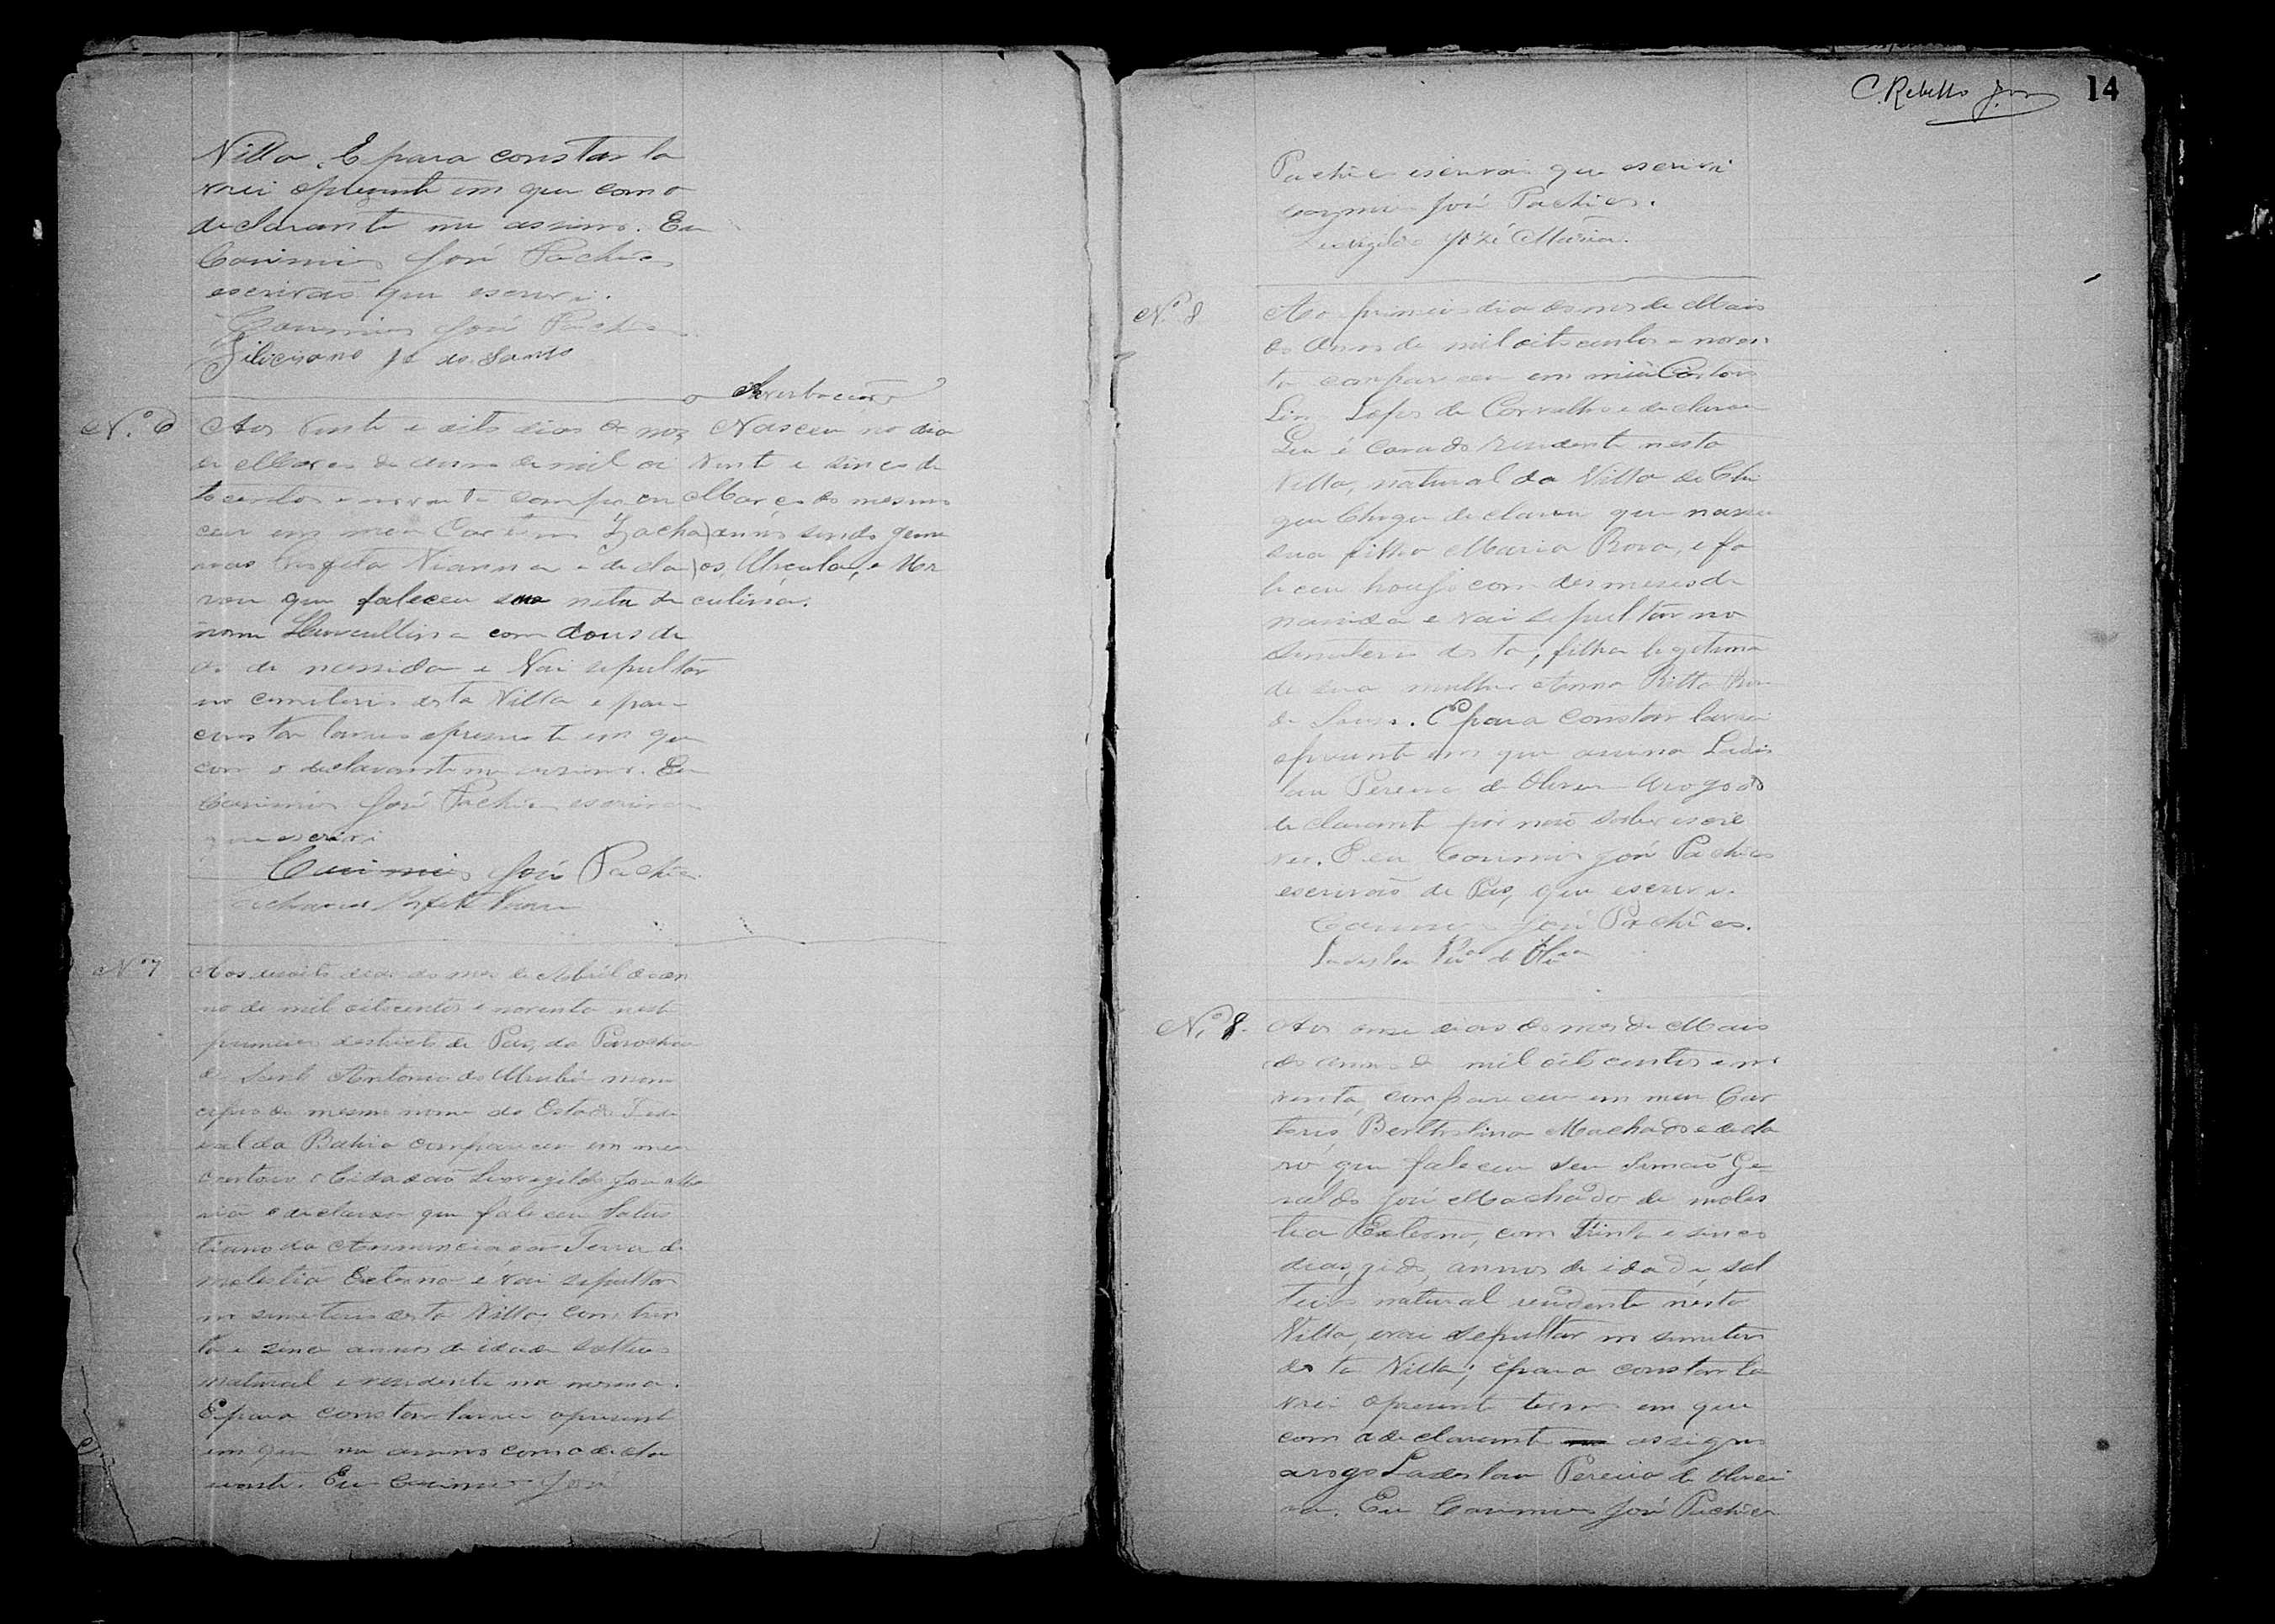 Villa. E para constar la
vrei opresente em que com o
declarante me assino. Eu
Casimiro José Pachêco
escrivão que escrevi.
Casimiro José Pachêco
Feliciano Je dos Santos
Averbação
N.º 6
Aos vinte e oito dias do mez
de Março do anno de mil oi
tocentos e noventa compare
ceu em meu Cartorio Zacha
rias Vianna e decla
rou que faleceu sua neta de
nome Herculina com dous di
as de nascida e vai sepultar
no cemiterio desta Villa e para
constar lavrei opresente em que
com o declarante me assino. Eu
Casimiro José Pachêco escrivão
que escrevi
Casimiro José Pachêco
Nasceu no dia
vinte e sinco de
Março do mesmo
anno sendo geme
os, Urçula, e Her
culina.
N.º 7
Aos dezoito dias do mes de Abril do an
no de mil oitocentos e noventa neste
primeiro destricto de Paz, da Parochia
de Santo Antonio do Urubú mone
cipio do mesmo nome do Estado Fede
ral da Bahia compareceu em meu
Cartorio o Cidadão Leovegildo José Ma
ria e declarou que faleceu Salus
tiano da Annunciação Serra de
molestia Externa e vai sepultar
no semeterio desta Villa com trin
ta e sinco annos de idade solteiro
natural e residente na mesma.
E para constar lavrei opresente
em que me assino com o decla
rante. Eu Casimiro José
C. Rebello Jor
14
Pachêco escrivão que escrevi
Casimiro José Pachêco.
Leovigildo José Maria.
N.º 8
Ao primeiro dia do mes de Maio
do Anno de mil oitocentos e noven
ta compareceu em meu Cartorio
Lino Lopes de Carvalho e declarou
que é casado residente nesta
Villa, natural da Villa de Chi
que Chique declarou que nasceu
sua filha Maria Roza, e fa
leceu hoje com des meses de
nascida e vai sepultar no
semeterio desta, filha legetima
de sua mulher Anna Ritta
de Souza. E para constar lavrei
opresente em que assina Ladis
lau Pereira de Oliveira arogo do
declarante por não saber escre
ver. E eu Casimiro José Pachêco
escrivão de Paz, que escrevi.
Casimiro José Pachêco.
Ladislau Pera de Olra
N.º 8.
Aos onze dias do mes de Maio
do anno de mil oitocentos e no
venta, compareceu em meu Car
torio Bertholina Machado e decla
rô que faleceu seu Irmão Ge
raldo José Machado de moles
tia Externa, com Trinta e sinco
dias, digo, annos de idade, sol
teiro natural residente nésta
Villa, evai sepultar no semeterio
desta Villa; epara constar la
vrei opresente termo em que
com adeclarante assigno
arogo Ladeslau Pereira de Olivei
ra. Eu Casimiro José Pachêco